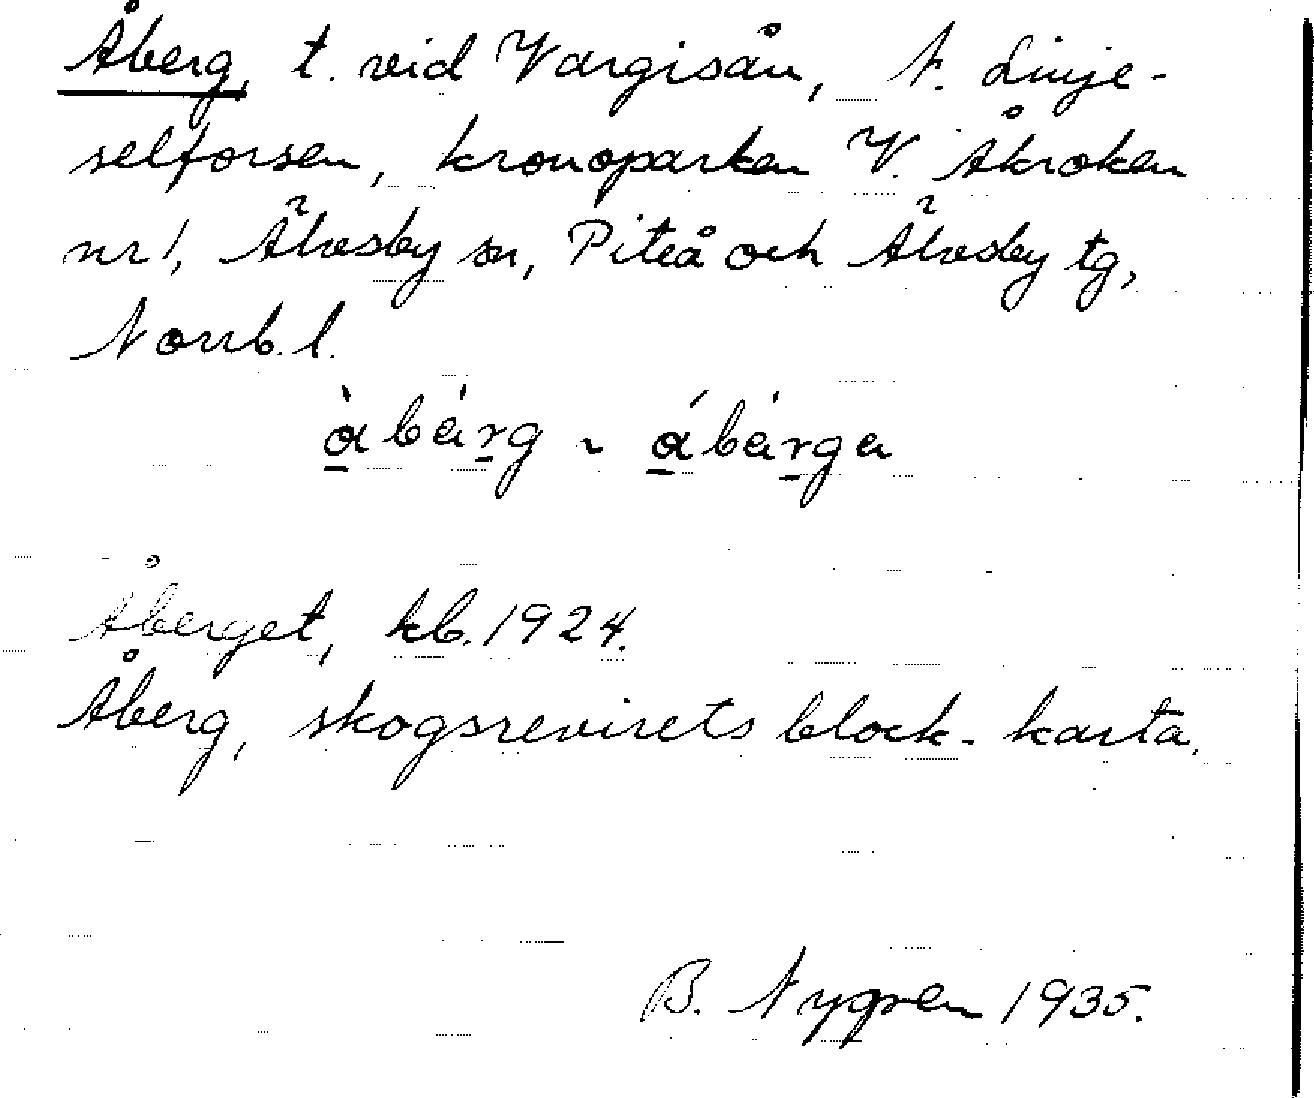 Åberg, t. vid Vargisån, N. Linje-
selforsen, kronoparken V. Åkroken
nr 1, Älvsby sn, Piteå och Älvsby tg,
Norrb. l.
Åberget, kb. 1924.
Åberg, skogsrevirets block-karta.
B. Nygren 1935.